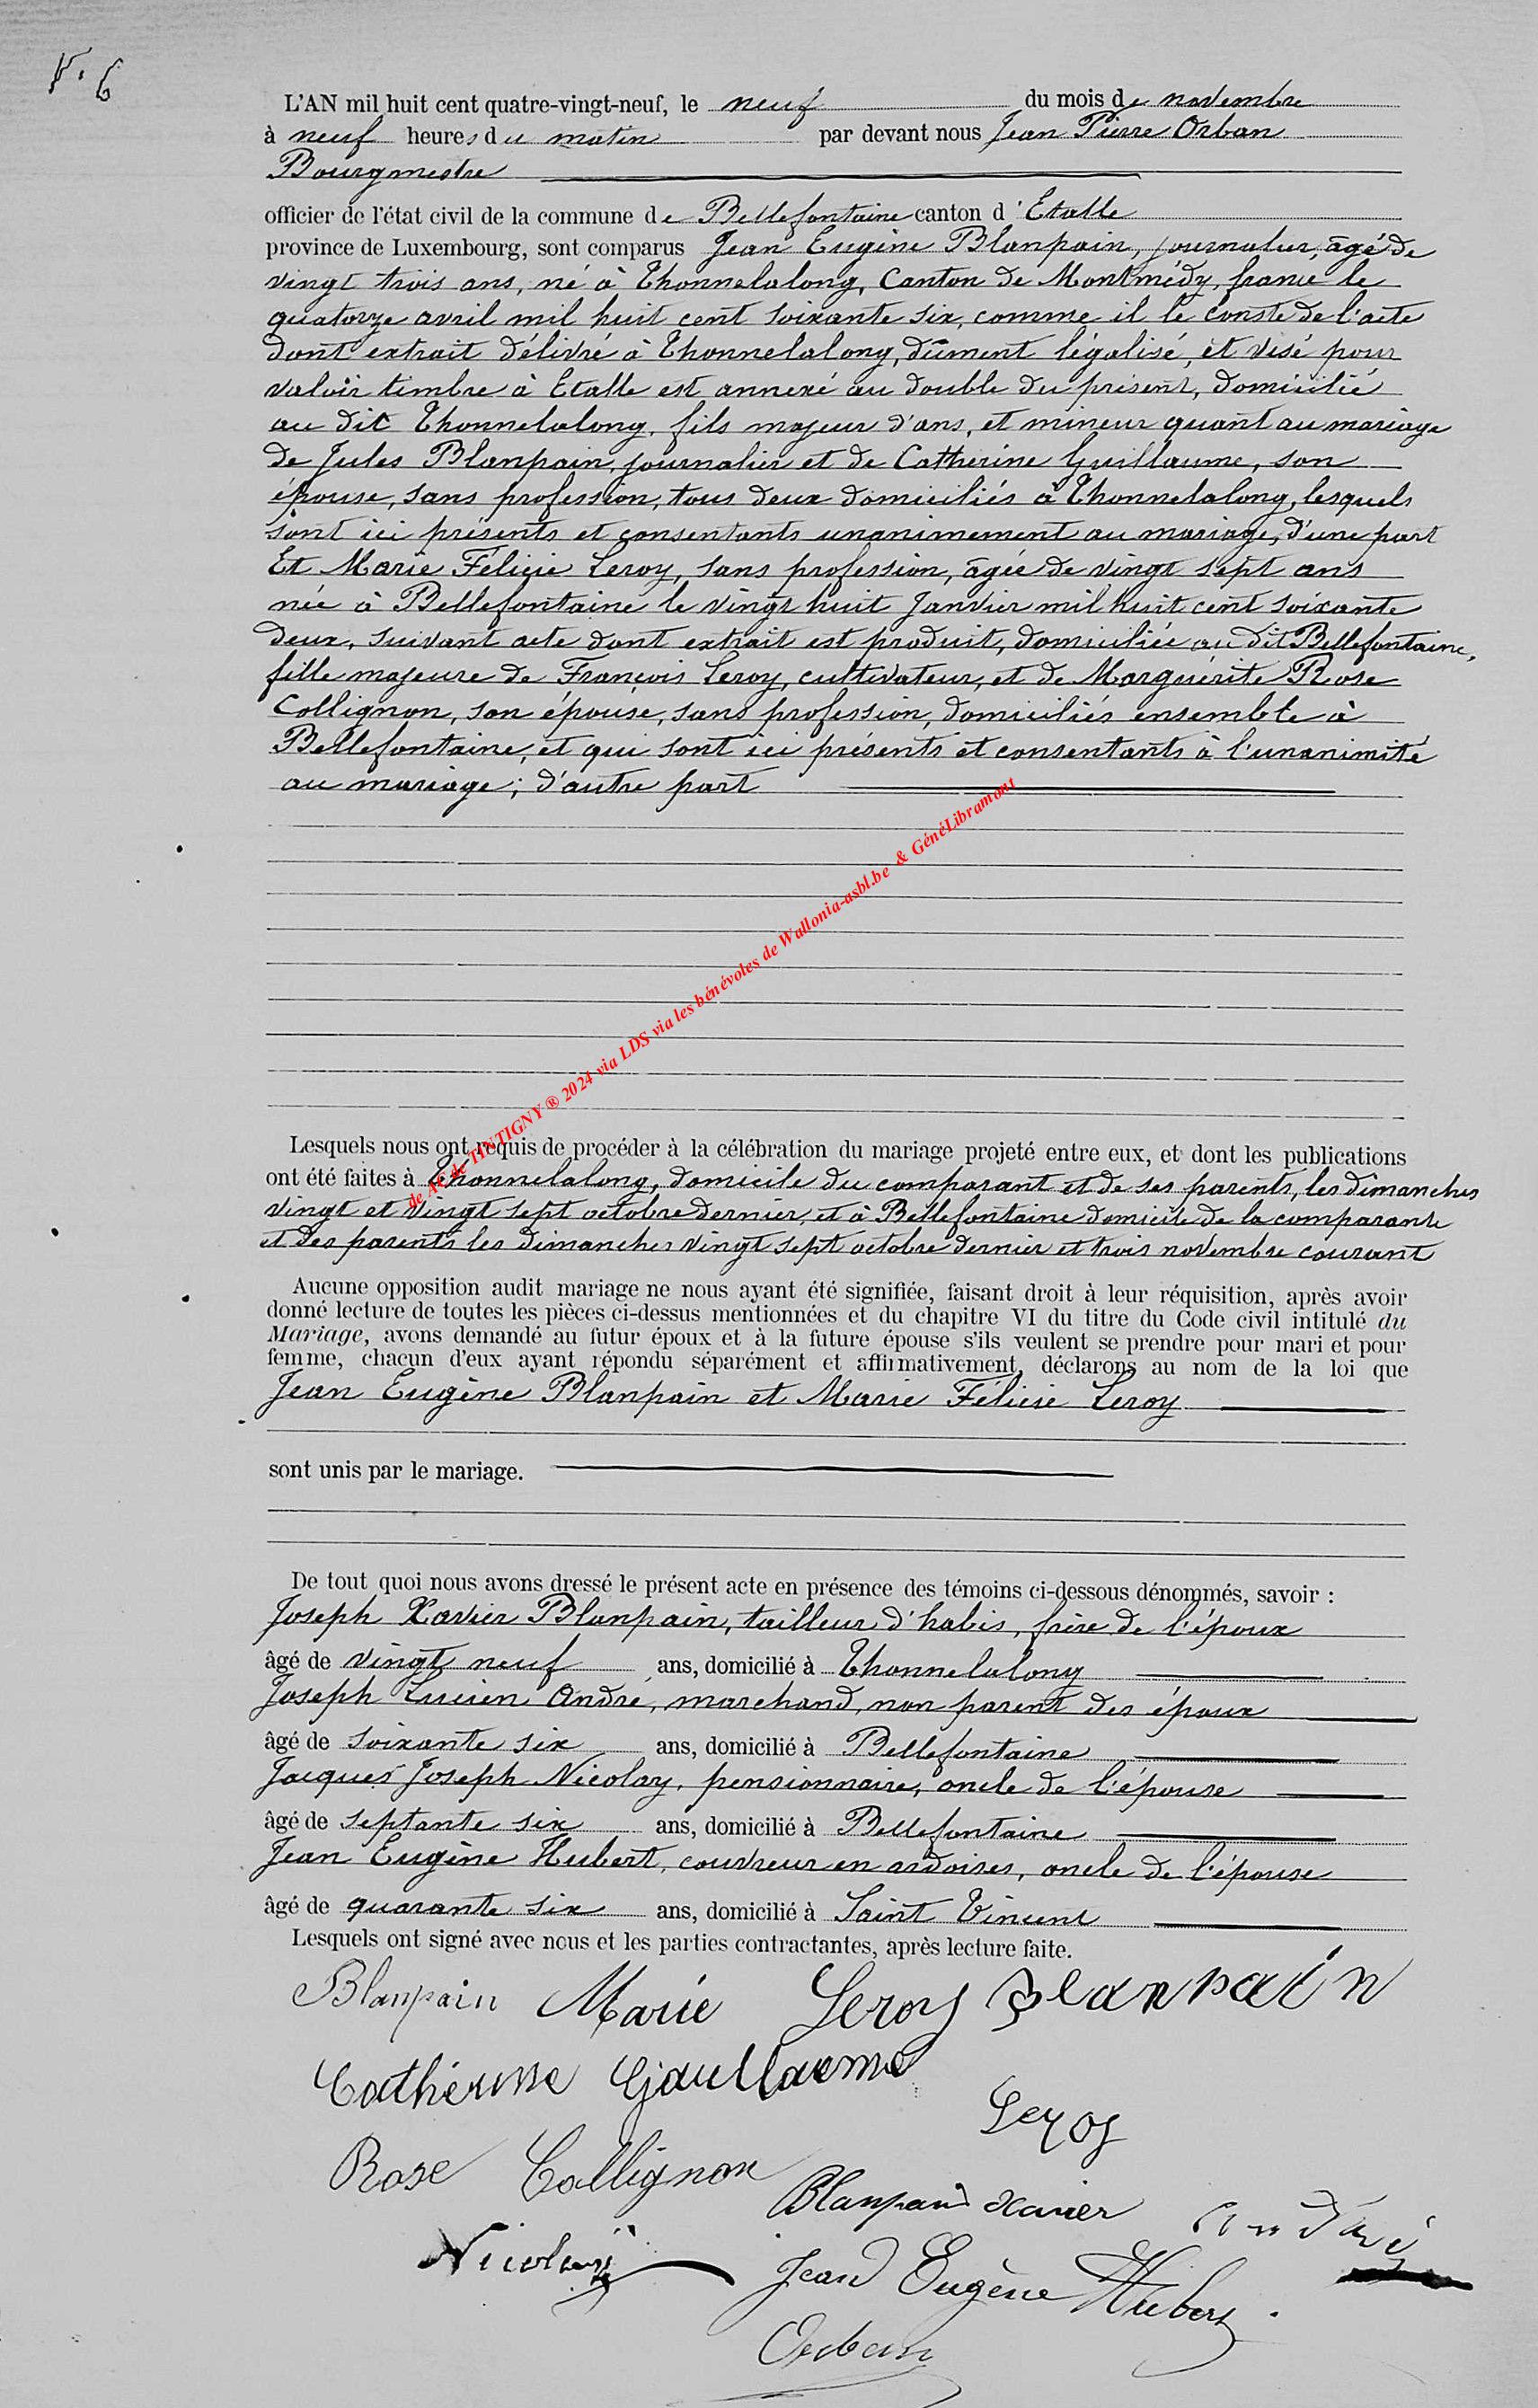 F. 6
L'AN mil huit cent quatre-vingt-neuf, le neuf du mois de novembre
à neuf heures du matin par devant nous Jean Pierre Orban
Bourgmestre
officier de l'état civil de la commune de Bellefontaine canton d'Etalle
province de Luxembourg, sont comparus Jean Eugène Blanpain, journalier, âgé de
vingt trois ans, né à Thonnelalong, Canton de Montmédy, france le
quatorze avril mil huit cent soixante six, comme il le conste de l'acte
dont extrait délivré à Thonnelalong, dûment légalisé, et visé pour
valoir timbre à Etalle est annexé au double du présent, domicilié
au dit Thonnelalong, fils majeur d'ans, et mineur quant au mariage
de Jules Blanpain, journalier et de Catherine Guillaume, son
épouse, sans profession, tous deux domiciliés à Thonnelalong, lesquels
sont ici présents et consentants unanimement au mariage, d'une part
Et Marie Félicie Leroy, sans profession, âgée de vingt sept ans
née à Bellefontaine le vingt huit Janvier mil huit cent soixante
deux, suivant acte dont extrait est produit, domiciliée au dit Bellefontaine,
fille majeure de François Leroy, cultivateur, et de Marguérite Rose
Collignon, son épouse, sans profession, domiciliés ensemble à
Bellefontaine, et qui sont ici présents et consentants à l'unanimité
au mariage; d'autre part
de AC de TINTIGNY ® 2024 via LDS via les bénévoles de Wallonia-asbl.be & GénéLibramont
Lesquels nous ont requis de procéder à la célébration du mariage projeté entre eux, et dont les publications
ont été faites à Thonnelalong, domicile du comparant et de ses parents, les dimanches
vingt et vingt sept octobre dernier, et à Bellefontaine domicile de la comparante
et des parents les dimanches vingt sept octobre dernier et trois novembre courant
Aucune opposition audit mariage ne nous ayant été signifiée, faisant droit à leur réquisition, après avoir
donné lecture de toutes les pièces ci-dessus mentionnées et du chapitre VI du titre du Code civil intitulé du
Mariage, avons demandé au futur époux et à la future épouse s'ils veulent se prendre pour mari et pour
femme, chacun d'eux ayant répondu séparément et affirmativement, déclarons au nom de la loi que
Jean Eugène Blanpain et Marie Félicie Leroy
sont unis par le mariage.
De tout quoi nous avons dressé le présent acte en présence des témoins ci-dessous dénommés, savoir :
Joseph Xavier Blanpain, tailleur d'habis, frère de l'époux
âgé de vingt neuf ans, domicilié à Thonnelalong
Joseph Lucien André, marchand, non parent des époux
âgé de soixante six ans, domicilié à Bellefontaine
Jacques Joseph Nicolay, pensionnaire, oncle de l'épouse
âgé de septante six ans, domicilié à Bellefontaine
Jean Eugène Hubert, couvreur en ardoises, oncle de l'épouse
âgé de quarante six ans, domicilié à Saint Vincent
Lesquels ont signé avec nous et les parties contractantes, après lecture faite.
Blanpain Marie Leroy Blanpain
Catherine Guillaume
Leroy
Rose Collignon
Blanpain Xavier André
Nicolay Jean Eugène Hubert.
Orban